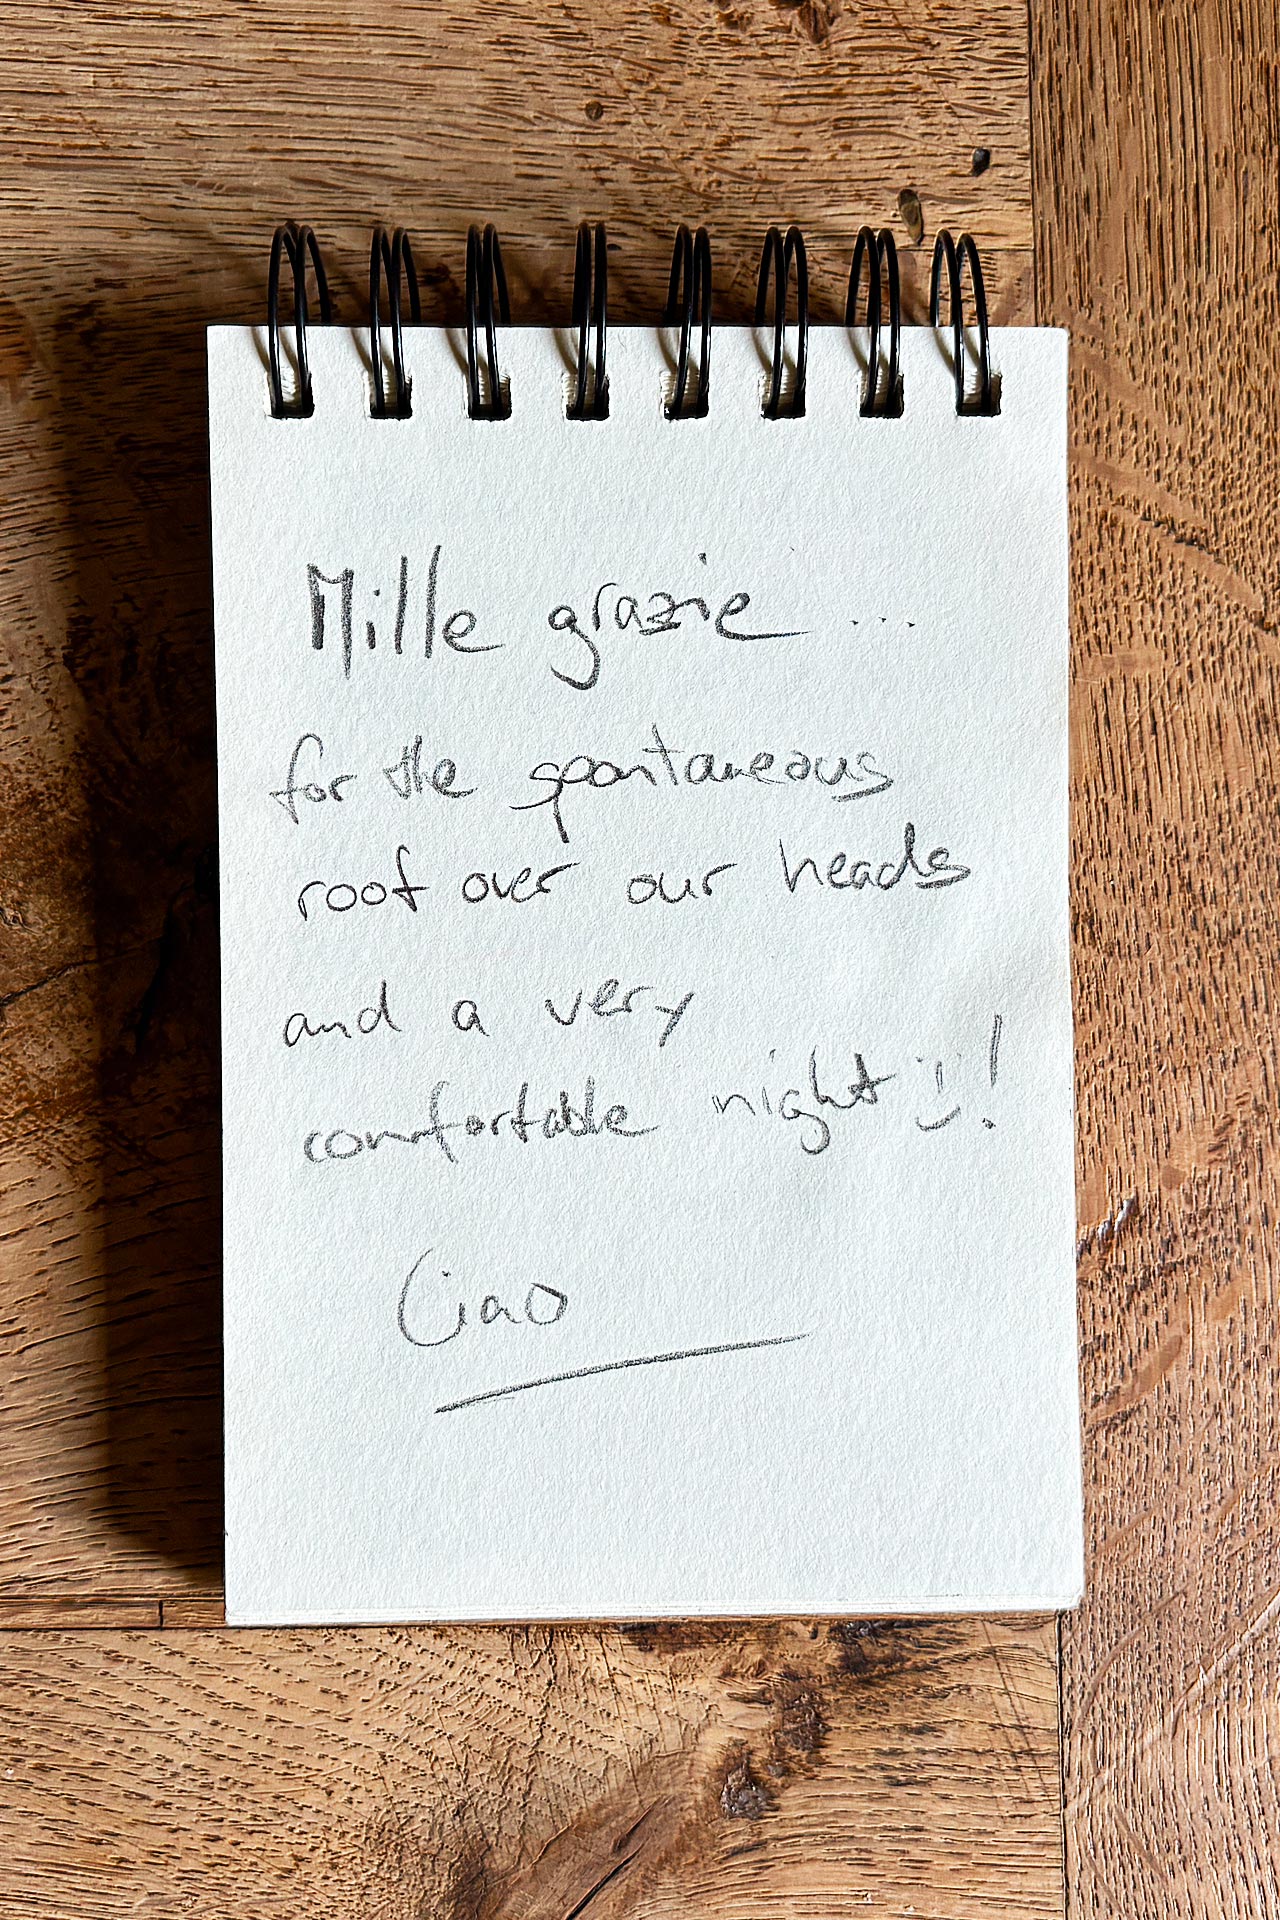 Mille grazie ...
for the spontaneous
roof over our heads
and a very
comfortable night :)!
Ciao